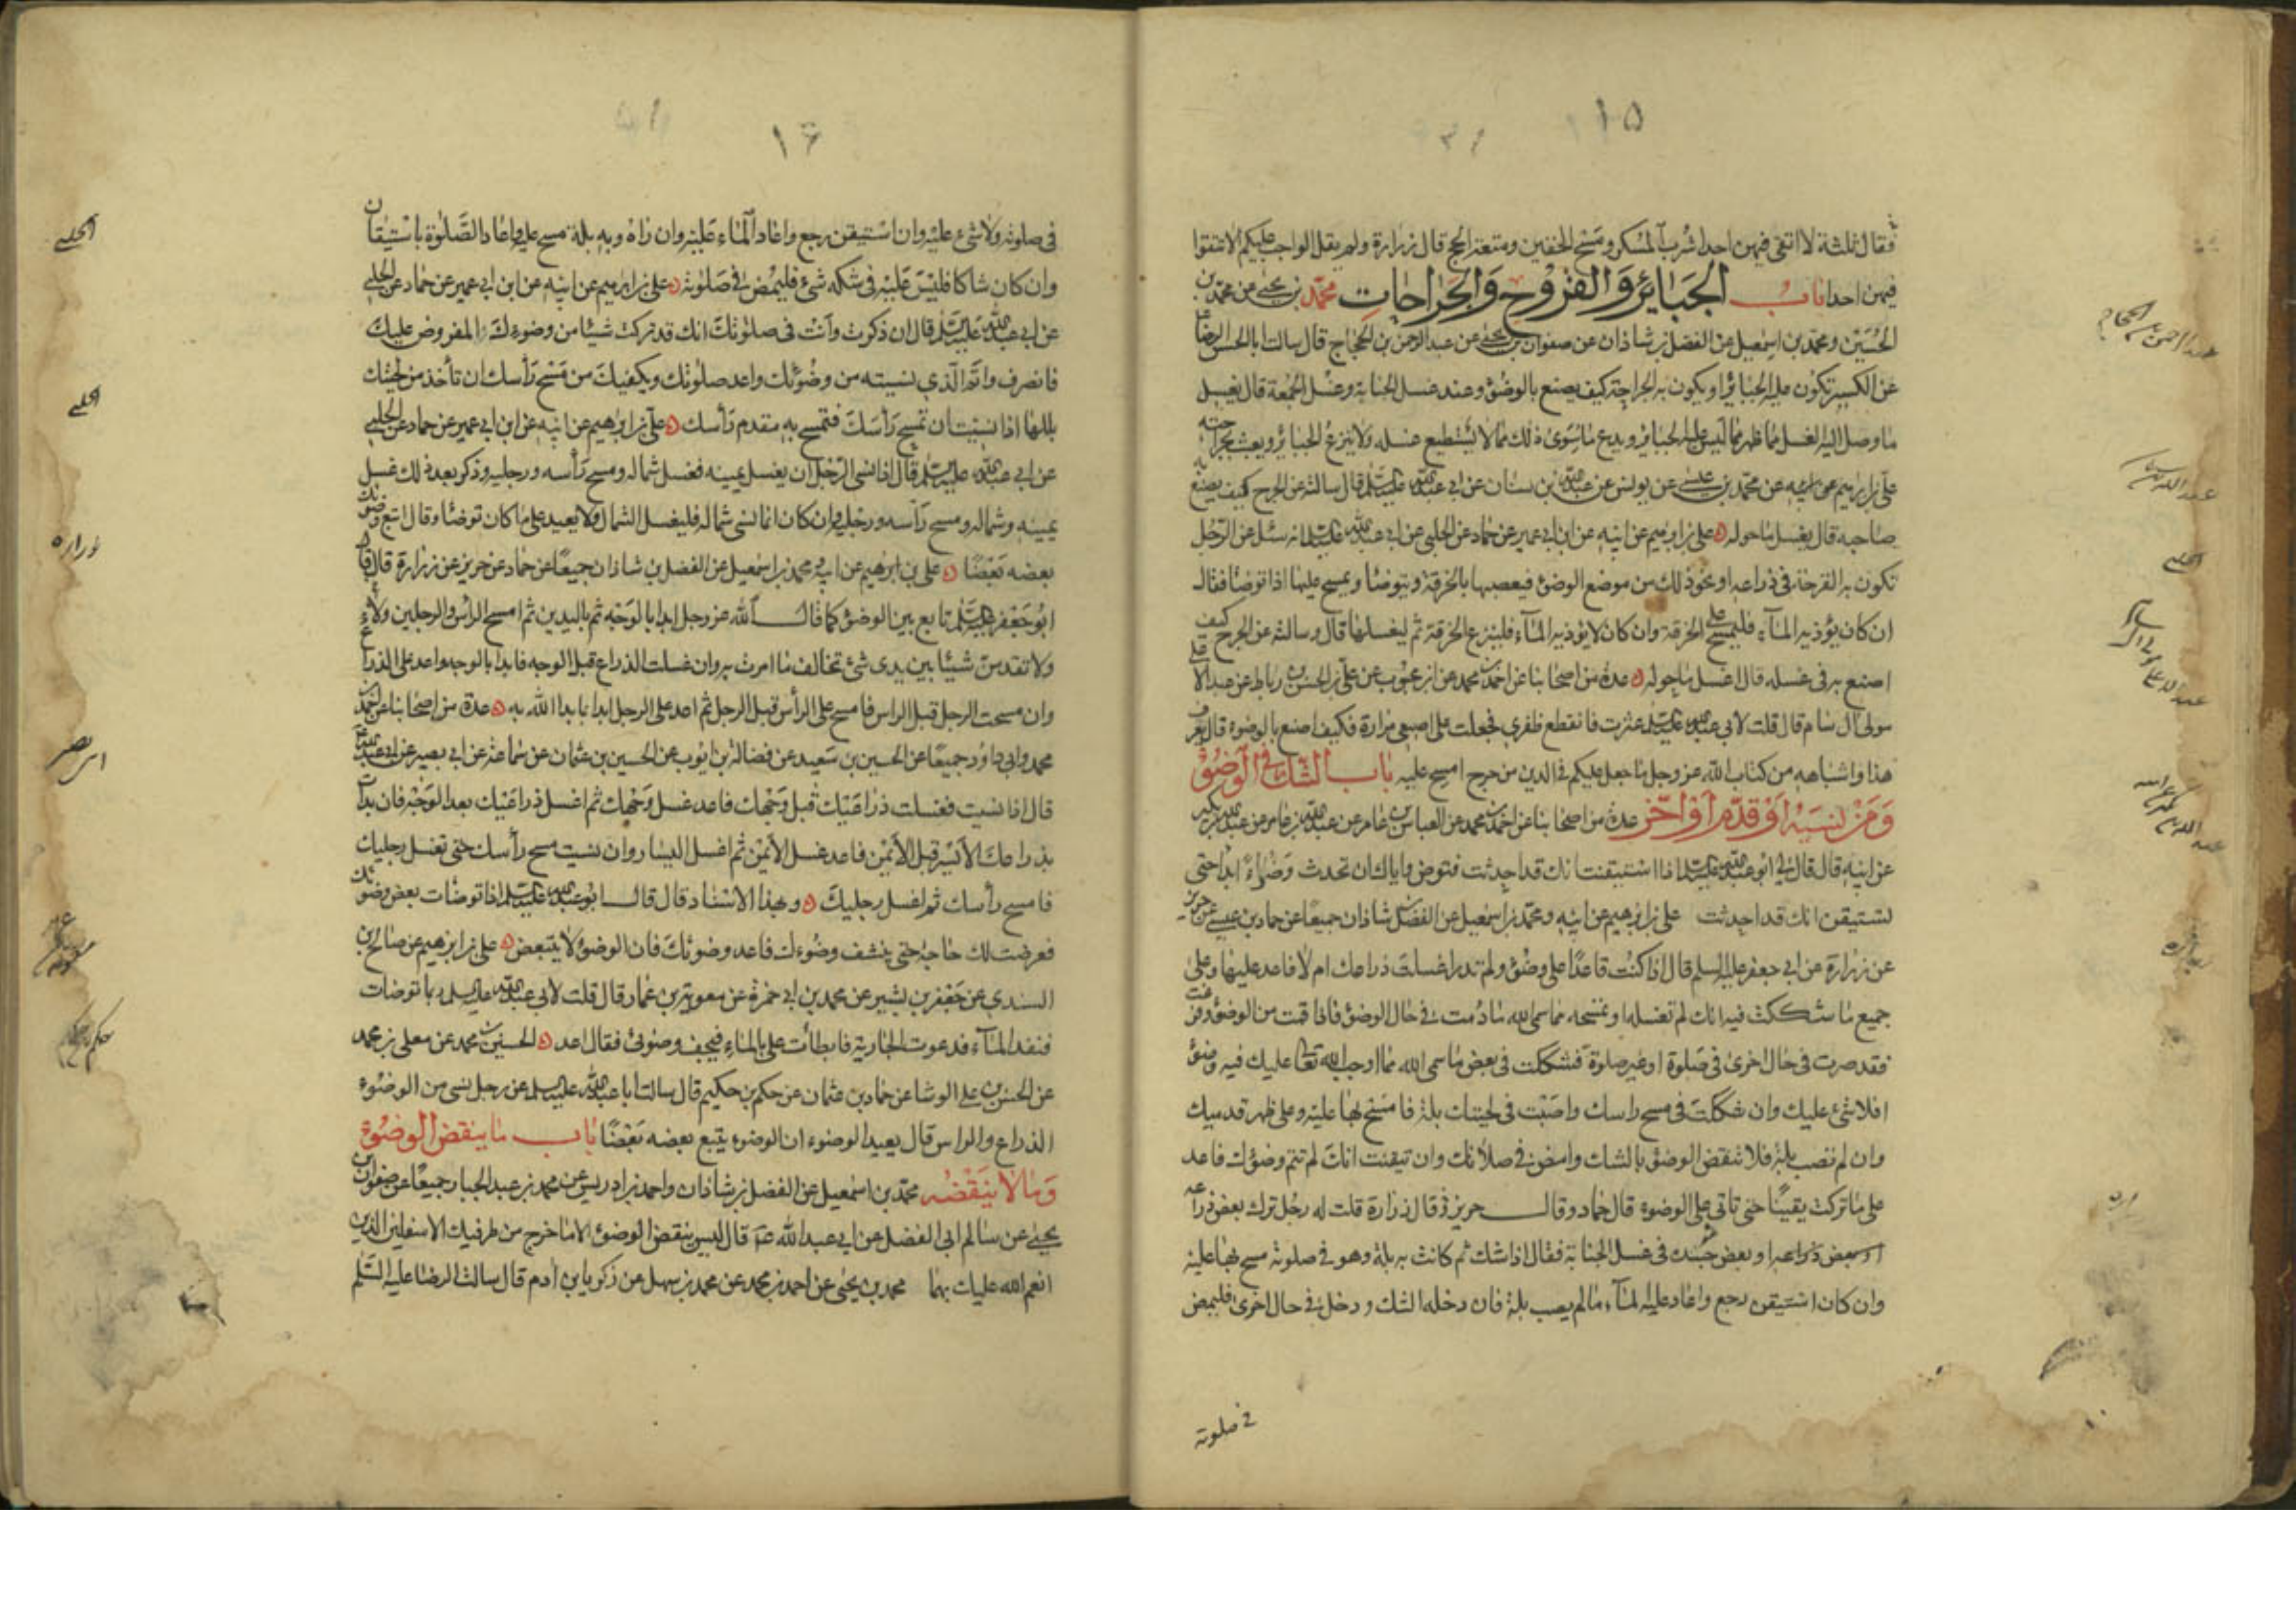 ١٥
فقال ثلثة لا اتقى فيهن احدا شرب المسكر ومسح الخفين ومتعة الحج قال زرارة ولم يقل الواجب عليكم الا تتقوا
فيهن احدا باب الجبائر والقروح والجراحات محمد بن يحيى عن محمد بن
الحسين ومحمد بن اسمعيل عن الفضل بن شاذان عن صفوان بن يحيى عن عبد الرحمن بن الحجاج قال سالت ابا الحسن الرضا ع
عن الكسير تكون عليه الجبائر او يكون به الجراحة كيف يصنع بالوضوء وعند غسل الجنابة وغسل الجمعة قال يغسل
ما وصل اليه الغسل مما ظهر مما ليس عليه الجبائر ويدع ما سوى ذلك مما لا يستطيع غسله ولا ينزع الجبائر ويعبث بجراحته
علي بن ابرهيم عن ابيه عن محمد بن عيسى عن يونس عن عبد الله بن سنان عن ابي عبد الله عليه السلم قال سالته عن الجرح كيف يصنع به
صاحبه قال يغسل ما حوله ٥ علي بن ابرهيم عن ابيه عن ابن ابي عمير عن حماد عن الحلبي عن ابي عبد الله عليه السلم انه سئل عن الرجل
تكون به القرحة في ذراعه او نحو ذلك من موضع الوضوء فيعصبها بالخرقة ويتوضا ويمسح عليها اذا توضا فقال
ان كان يؤذيه الماء فليمسح على الخرقة وان كان لا يؤذيه الماء فلينزع الخرقة ثم ليغسلها قال وسالته عن الجرح كيف
اصنع به في غسله قال اغسل ما حوله ٥ عدة من اصحابنا عن احمد بن محمد عن ابن محبوب عن علي بن الحسن بن رباط عن عبد الاعلى
مولى آل سام قال قلت لابي عبد الله عليه السلم عثرت فانقطع ظفري فجعلت على اصبعي مرارة فكيف اصنع بالوضوء قال يعرف
هذا واشباهه من كتاب الله عز وجل ما جعل عليكم في الدين من حرج امسح عليه باب الشك في الوضوء
ومن نسيه او قدم او اخر عدة من اصحابنا عن احمد بن محمد عن العباس بن عامر عن عبد الله بن بكير
عن ابيه قال قال لي ابو عبد الله عليه السلم اذا استيقنت انك قد احدثت فتوض واياك ان تحدث وضوءا ابدا حتى
تستيقن انك قد احدثت علي بن ابرهيم عن ابيه ومحمد بن اسمعيل عن الفضل بن شاذان جميعا عن حماد بن عيسى عن حريز
عن زرارة عن ابي جعفر عليه السلم قال اذا كنت قاعدا على وضوء ولم تدر اغسلت ذراعك ام لا فاعد عليها وعلى
جميع ما شككت فيه انك لم تغسله او تمسحه مما سمى الله ما دمت في حال الوضوء فاذا قمت من الوضوء وفرغت
فقد صرت في حال اخرى في صلوة او غير صلوة فشككت في بعض ما سمى الله مما اوجب الله تعالى عليك فيه وضوء
افلا شئ عليك وان شككت في مسح راسك واصبت في لحيتك بلة فامسح بها عليه وعلى ظهر قدميك
وان لم تصب بلة فلا تنقض الوضوء بالشك وامض في صلاتك وان تيقنت انك لم تتم وضوئك فاعد
على ما تركت يقينا حتى تاتي على الوضوء قال حماد وقال حريز قال زرارة قلت له رجل ترك بعض ذراعه
او بعض جسده في غسل الجنابة فقال اذا شك ثم كانت به بلة وهو في صلوته مسح بها عليه
وان كان استيقن رجع واعاد عليه الماء ما لم يصب بلة فان دخله الشك ودخل في حال اخرى فليمض
في صلوته
عبد الرحمن بن الحجاج
عبد الله بن سنان
الحلبي
زرارة
١٦
في صلوته ولا شئ عليه وان استيقن رجع واعاد الماء عليه وان راه وبه بلة مسح عليه واعاد الصلوة باستيقان
وان كان شاكا فليس عليه في شكه شئ فليمض في صلوته ٥ علي بن ابرهيم عن ابيه عن ابن ابي عمير عن حماد عن الحلبي
عن ابي عبد الله عليه السلم قال ان ذكرت وانت في صلوتك انك قد تركت شيئا من وضوءك المفروض عليك
فانصرف واتم الذي نسيته من وضوئك واعد صلوتك ويكفيك من مسح رأسك ان تأخذ من لحيتك
بللها اذا نسيت ان تمسح رأسك فتمسح به مقدم رأسك ٥ علي بن ابرهيم عن ابيه عن ابن ابي عمير عن حماد عن الحلبي
عن ابي عبد الله عليه السلم قال اذا نسى الرجل ان يغسل يمينه فغسل شماله ومسح رأسه ورجليه وذكر بعد ذلك غسل
يمينه وشماله ومسح رأسه ورجليه وان كان انما نسى شماله فليغسل الشمال ولا يعيد على ما كان توضا وقال اتبع وضوئك
بعضه بعضا ٥ علي بن ابرهيم عن ابيه ومحمد بن اسمعيل عن الفضل بن شاذان جميعا عن حماد عن حريز عن زرارة قال قال
ابو جعفر عليه السلم تابع بين الوضوء كما قال الله عز وجل ابدا بالوجه ثم باليدين ثم امسح الراس والرجلين ولا
ولا تقدمن شيئا بين يدى شئ تخالف ما امرت به وان غسلت الذراع قبل الوجه فابدا بالوجه واعد على الذراع
وان مسحت الرجل قبل الراس فامسح على الرأس قبل الرجل ثم اعد على الرجل ابدا بما بدا الله به ٥ عدة من اصحابنا عن احمد بن
محمد وابي داود جميعا عن الحسين بن سعيد عن فضالة بن ايوب عن الحسين بن عثمان عن سماعة عن ابي بصير عن ابي عبد الله ع
قال اذا نسيت فغسلت ذراعيك قبل وجهك فاعد غسل وجهك ثم اغسل ذراعيك بعد الوجه فان بدأت
بذراعك الأيسر قبل الأيمن فاعد غسل الأيمن ثم اغسل اليسار وان نسيت مسح رأسك حتى تغسل رجليك
فامسح رأسك ثم اغسل رجليك ٥ وبهذا الاسناد قال قال ابو عبد الله عليه السلم اذا توضات بعض وضوئك
فعرضت لك حاجة حتى ينشف وضوءك فاعد وضوئك فان الوضوء لا يتبعض ٥ علي بن ابرهيم عن صالح بن
السندي عن جعفر بن بشير عن محمد بن ابي حمزة عن معوية بن عمار قال قلت لابي عبد الله عليه السلم ربما توضات
فنفد الماء فدعوت الجارية فابطأت علي بالماء فيجف وضوئى فقال اعد ٥ الحسين بن محمد عن معلى بن محمد
عن الحسن بن علي الوشا عن حماد بن عثمان عن حكم بن حكيم قال سالت ابا عبد الله عليه السلم عن رجل نسى من الوضوء
الذراع والراس قال يعيد الوضوء ان الوضوء يتبع بعضه بعضا باب ما ينقض الوضوء
وما لا ينقضه محمد بن اسمعيل عن الفضل بن شاذان واحمد بن ادريس عن محمد بن عبد الجبار جميعا عن صفوان بن
يحيى عن سالم ابي الفضل عن ابي عبد الله ع قال ليس ينقض الوضوء الا ما خرج من طرفيك الاسفلين الذين
انعم الله عليك بهما محمد بن يحيى عن احمد بن محمد عن محمد بن سهل عن زكريا بن أدم قال سالت الرضا عليه السلم
الحلبي
الحلبي
زرارة
ابو بصير